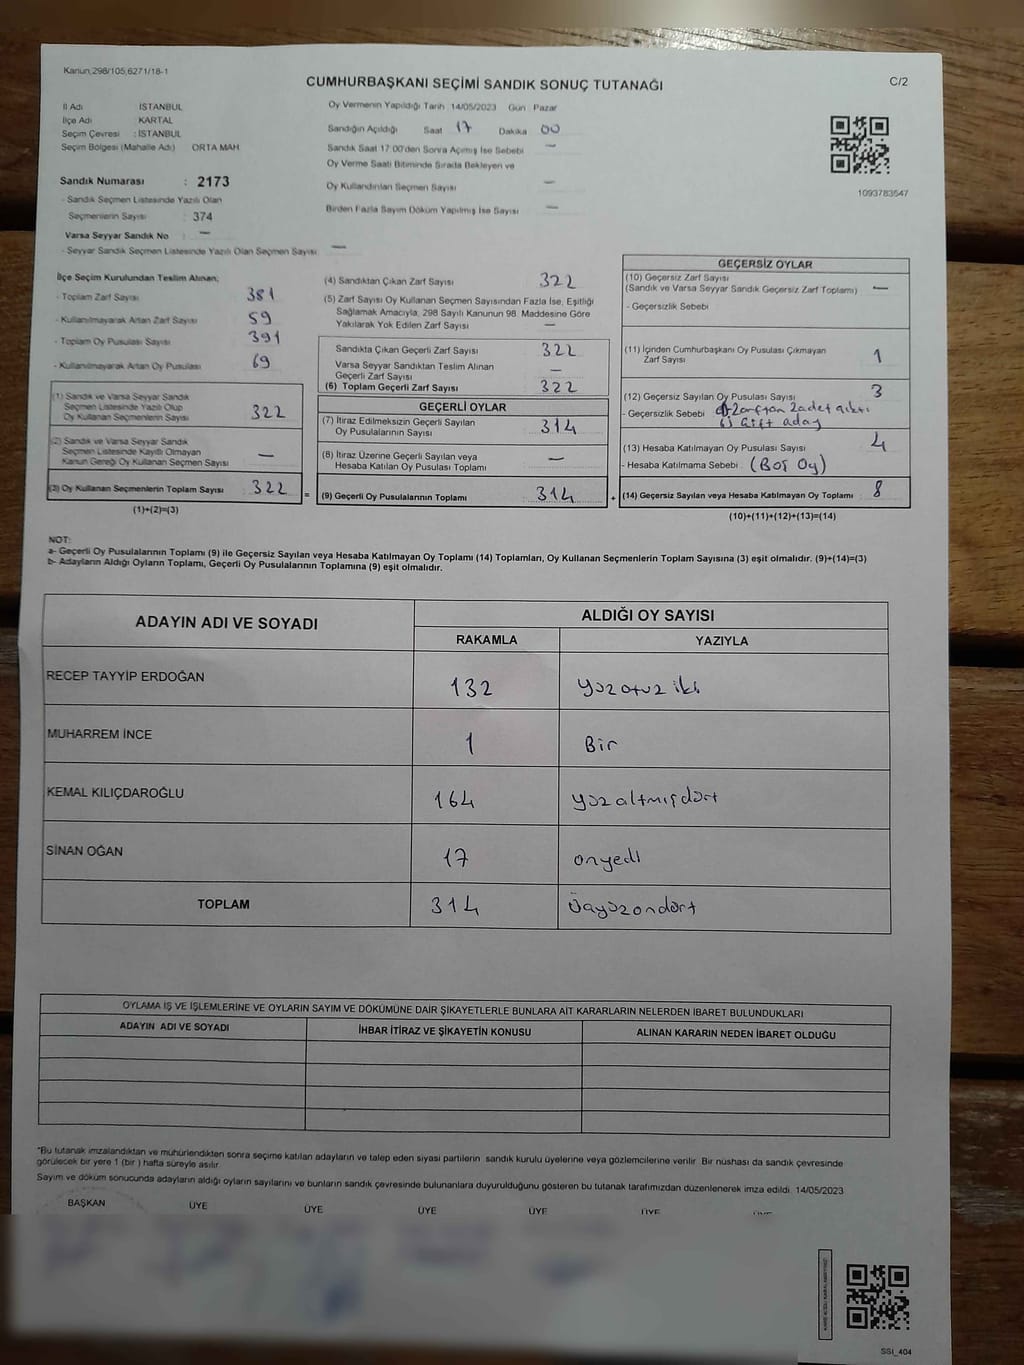 Kanun,298/105,6271/18-1
CUMHURBAŞKANI SEÇİMİ SANDIK SONUÇ TUTANAĞI
C/2
İl Adı İSTANBUL
İlçe Adı : KARTAL
Seçim Çevresi : İSTANBUL
Seçim Bölgesi (Mahalle Adı) ORTA MAH
Sandık Numarası : 2173
- Sandık Seçmen Listesinde Yazılı Olan
Seçmenlerin Sayısı : 374
Varsa Seyyar Sandık No : —
- Seyyar Sandık Seçmen Listesinde Yazılı Olan Seçmen Sayısı —
Oy Vermenin Yapıldığı Tarih 14/05/2023 Gün Pazar
Sandığın Açıldığı Saat 17 Dakika 00
Sandık Saat 17:00'den Sonra Açılmış İse Sebebi —
Oy Verme Saati Bitiminde Sırada Bekleyen ve
Oy Kullandırılan Seçmen Sayısı —
Birden Fazla Sayım Döküm Yapılmış İse Sayısı —
1093783547
İlçe Seçim Kurulundan Teslim Alınan;
- Toplam Zarf Sayısı 381
- Kullanılmayarak Artan Zarf Sayısı 59
- Toplam Oy Pusulası Sayısı 391
- Kullanılmayarak Artan Oy Pusulası 69
(1) Sandık ve Varsa Seyyar Sandık
Seçmen Listesinde Yazılı Olup
Oy Kullanan Seçmenlerin Sayısı 322
(2) Sandık ve Varsa Seyyar Sandık
Seçmen Listesinde Kayıtlı Olmayan
Kanun Gereği Oy Kullanan Seçmen Sayısı —
(3) Oy Kullanan Seçmenlerin Toplam Sayısı 322 =
(1)+(2)=(3)
(4) Sandıktan Çıkan Zarf Sayısı 322
(5) Zarf Sayısı Oy Kullanan Seçmen Sayısından Fazla İse, Eşitliği
Sağlamak Amacıyla, 298 Sayılı Kanunun 98. Maddesine Göre
Yakılarak Yok Edilen Zarf Sayısı —
Sandıkta Çıkan Geçerli Zarf Sayısı 322
Varsa Seyyar Sandıktan Teslim Alınan
Geçerli Zarf Sayısı —
(6) Toplam Geçerli Zarf Sayısı 322
GEÇERLİ OYLAR
(7) İtiraz Edilmeksizin Geçerli Sayılan
Oy Pusulalarının Sayısı 314
(8) İtiraz Üzerine Geçerli Sayılan veya
Hesaba Katılan Oy Pusulası Toplamı —
(9) Geçerli Oy Pusulalarının Toplamı 314 +
GEÇERSİZ OYLAR
(10) Geçersiz Zarf Sayısı
(Sandık ve Varsa Seyyar Sandık Geçersiz Zarf Toplamı) —
- Geçersizlik Sebebi
(11) İçinden Cumhurbaşkanı Oy Pusulası Çıkmayan
Zarf Sayısı 1
(12) Geçersiz Sayılan Oy Pusulası Sayısı 3
- Geçersizlik Sebebi zarftan 2adet çıktı
çift aday
(13) Hesaba Katılmayan Oy Pusulası Sayısı 4
- Hesaba Katılmama Sebebi (Boş Oy)
(14) Geçersiz Sayılan veya Hesaba Katılmayan Oy Toplamı 8
(10)+(11)+(12)+(13)=(14)
NOT:
a- Geçerli Oy Pusulalarının Toplamı (9) ile Geçersiz Sayılan veya Hesaba Katılmayan Oy Toplamı (14) Toplamları, Oy Kullanan Seçmenlerin Toplam Sayısına (3) eşit olmalıdır. (9)+(14)=(3)
b- Adayların Aldığı Oyların Toplamı, Geçerli Oy Pusulalarının Toplamına (9) eşit olmalıdır.
ADAYIN ADI VE SOYADI ALDIĞI OY SAYISI
RAKAMLA YAZIYLA
RECEP TAYYİP ERDOĞAN 132 yüzotuz iki
MUHARREM İNCE 1 Bir
KEMAL KILIÇDAROĞLU 164 yüzaltmışdört
SİNAN OĞAN 17 onyedi
TOPLAM 314 Üçyüzondört
OYLAMA İŞ VE İŞLEMLERİNE VE OYLARIN SAYIM VE DÖKÜMÜNE DAİR ŞİKAYETLERLE BUNLARA AİT KARARLARIN NELERDEN İBARET BULUNDUKLARI
ADAYIN ADI VE SOYADI İHBAR İTİRAZ VE ŞİKAYETİN KONUSU ALINAN KARARIN NEDEN İBARET OLDUĞU
*Bu tutanak imzalandıktan ve mühürlendikten sonra seçime katılan adayların ve talep eden siyasi partilerin sandık kurulu üyelerine veya gözlemcilerine verilir. Bir nüshası da sandık çevresinde
görülecek bir yere 1 (bir) hafta süreyle asılır.
Sayım ve döküm sonucunda adayların aldığı oyların sayılarını ve bunların sandık çevresinde bulunanlara duyurulduğunu gösteren bu tutanak tarafımızdan düzenlenerek imza edildi. 14/05/2023
BAŞKAN ÜYE ÜYE ÜYE ÜYE ÜYE ÜYE
SSİ_404